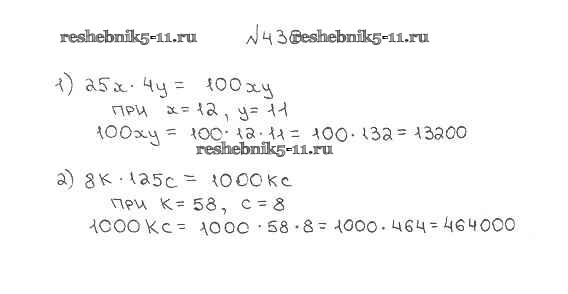 reshebnik5-11.ru №438 reshebnik5-11.ru
1) 25x · 4y = 100xy
при x = 12, y = 11
100xy = 100 · 12 · 11 = 100 · 132 = 13200
reshebnik5-11.ru
2) 8к · 125с = 1000кс
при к = 58, с = 8
1000кс = 1000 · 58 · 8 = 1000 · 464 = 464000